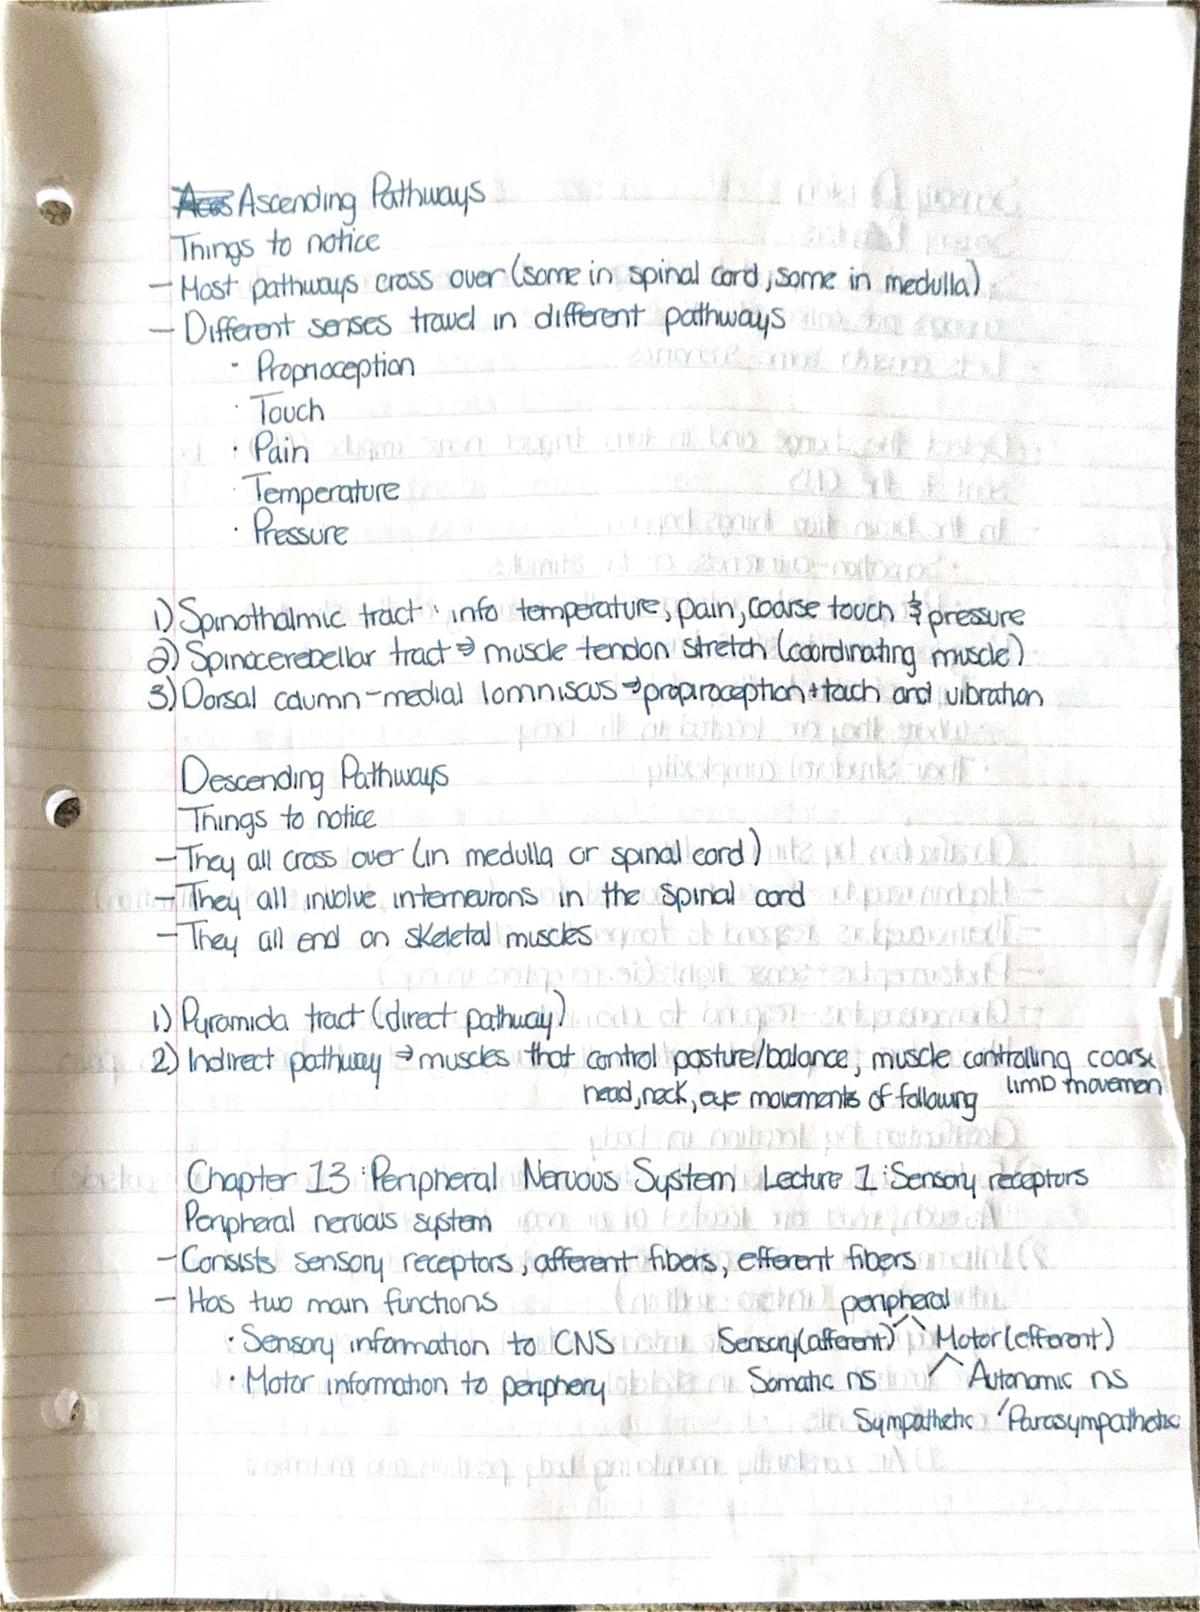 Ascending Pathways
Things to notice
- Most pathways cross over (some in spinal cord, some in medulla)
- Different senses travel in different pathways
· Proprioception
· Touch
· Pain
· Temperature
· Pressure
1) Spinothalmic tract : info temperature, pain, coarse touch & pressure
2) Spinocerebellar tract → muscle tendon stretch (coordinating muscle)
3) Dorsal caumn-medial lomniscus → propiroception + tach and vibration
Descending Pathways
Things to notice
- They all cross over (in medulla or spinal cord)
- They all involve interneurons in the spinal cord
- They all end on skeletal muscles
1) Pyramida tract (direct pathway)
2) Indirect pathway → muscles that control posture/balance, muscle controlling coarse
limb movemen
head, neck, eye movements of following
Chapter 13 : Peripheral Nervous System Lecture 1 : Sensory receptors
Peripheral nervous system
- Consists sensory receptors, afferent fibers, efferent fibers
- Has two main functions
peripheral
· Sensory information to CNS
Sensory (afferent) Motor (efferent)
· Motor information to periphery
Somatic ns Autonomic ns
Sympathetic Parasympathetic